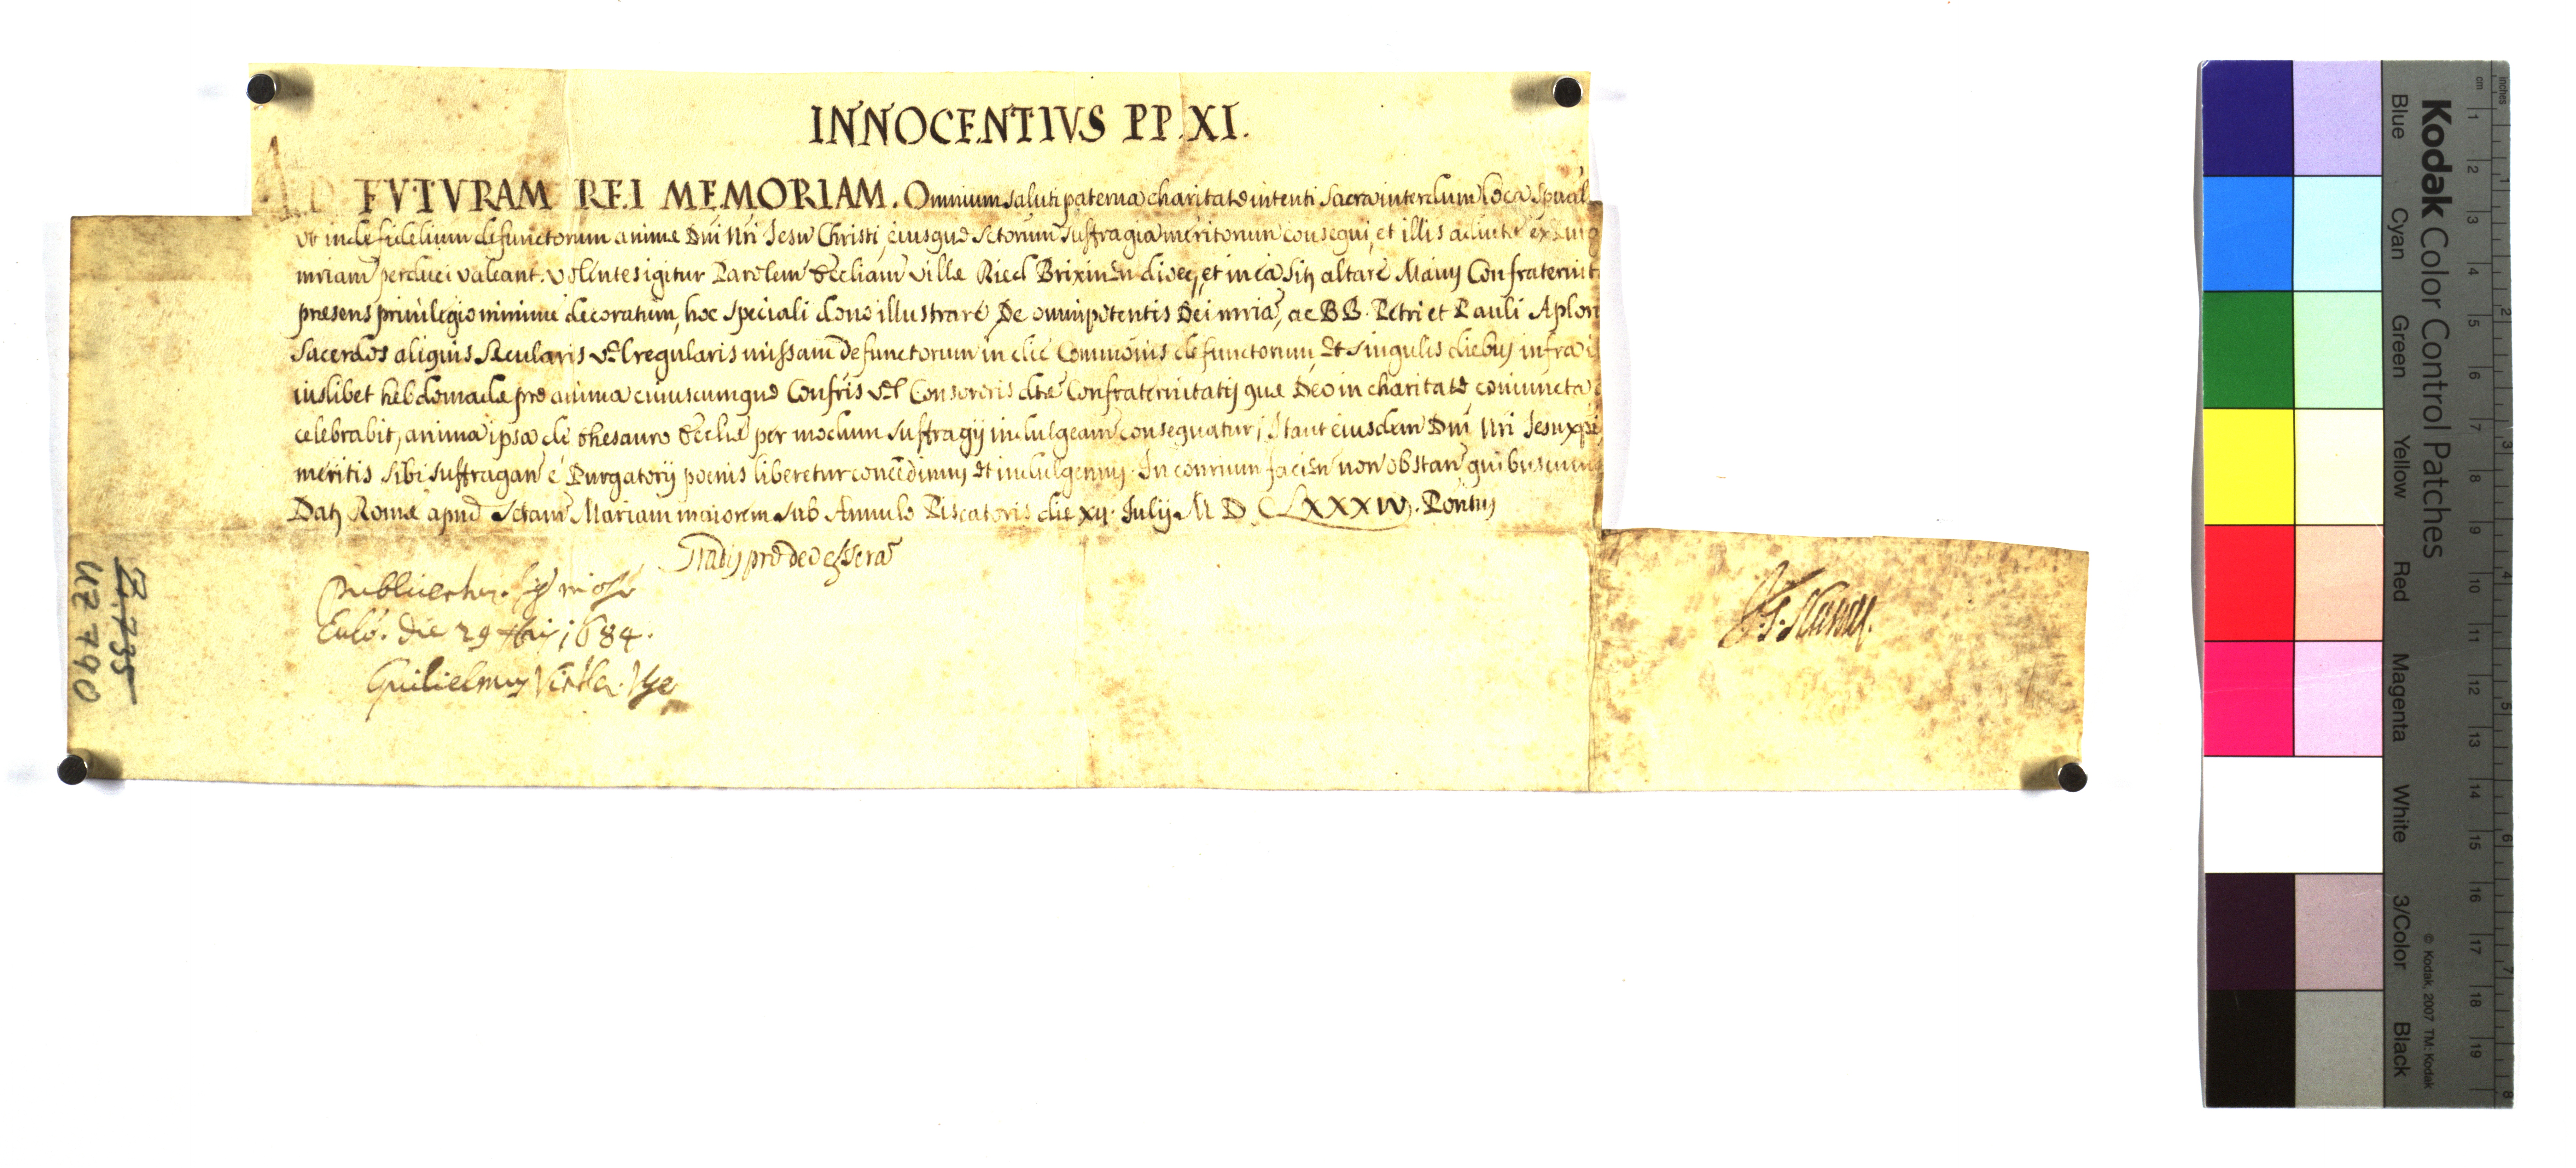 INNOCENTIVS PP. XI.
AD FVTVRAM REI MEMORIAM. Omnium saluti paterna charitate intenti sacra interdum loca spūal
ut inde fidelium defunctorum animæ Dñi Nri Jesu Christi, eiusque Sctorum suffragia meritorum consequi, et illis adiutæ ex
mriam perduci valeant. Volentes igitur Parolem Eccliam Villæ Ried Brixineñ diœc, et in ea sitz altare Confraternit
præsens priuilegio minime decoratum, hoc speciali dono illustrare De omnipotentis Dei mria, ac BB. Petri et Pauli Aplor
Sacerdos aliquis Secularis vel regularis missam defunctorum in die Commõnis defunctorum, et singulis diebus infra
iuslibet hebdomadæ pro anima cuiuscumque Confris vel Consororis dtæ Confraternitatis quæ Deo in charitate coniuncta
celebrabit, anima ipsa de thesauro Eccliæ per modum suffragij indulgeam consequatur, Ita ut eiusdem Dñi Nri Jesu xpi,
meritis sibi suffragan é Purgatorij pœnis liberetur concedimus et indulgemus. In contrium facien non obstan quibuscum
Datz Romæ apud Sctam Mariam maiorem sub Annulo Piscatoris die xij. Julij M D C LXXXIV. Pontus
Publicetur.
die 29 1684.
Guilielmus
J. G. Slusius.
Z. 735
UZ 790
Kodak Color Control Patches
Blue Cyan Green Yellow Red Magenta White 3/Color Black
© Kodak, 2007 TM: Kodak
cm 1 2 3 4 5 6 7 8 9 10 11 12 13 14 15 16 17 18 19
inches 1 2 3 4 5 6 7 8